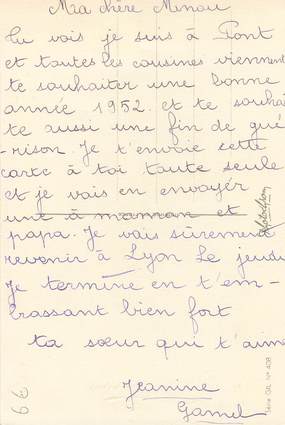 Ma chère Minou
Tu vois je suis à Pont
et toutes les cousines viennent
te souhaiter une bonne
année 1952. et te souhai
te aussi une fin de gué
rison. Je t'envoie cette
carte à toi toute seule
et je vais en envoyer
une à maman et
papa. Je vais sûrement
revenir à Lyon Le jeudi
Je termine en t'em-
brassant bien fort
ta sœur qui t'aime
Jeanine
Gamel